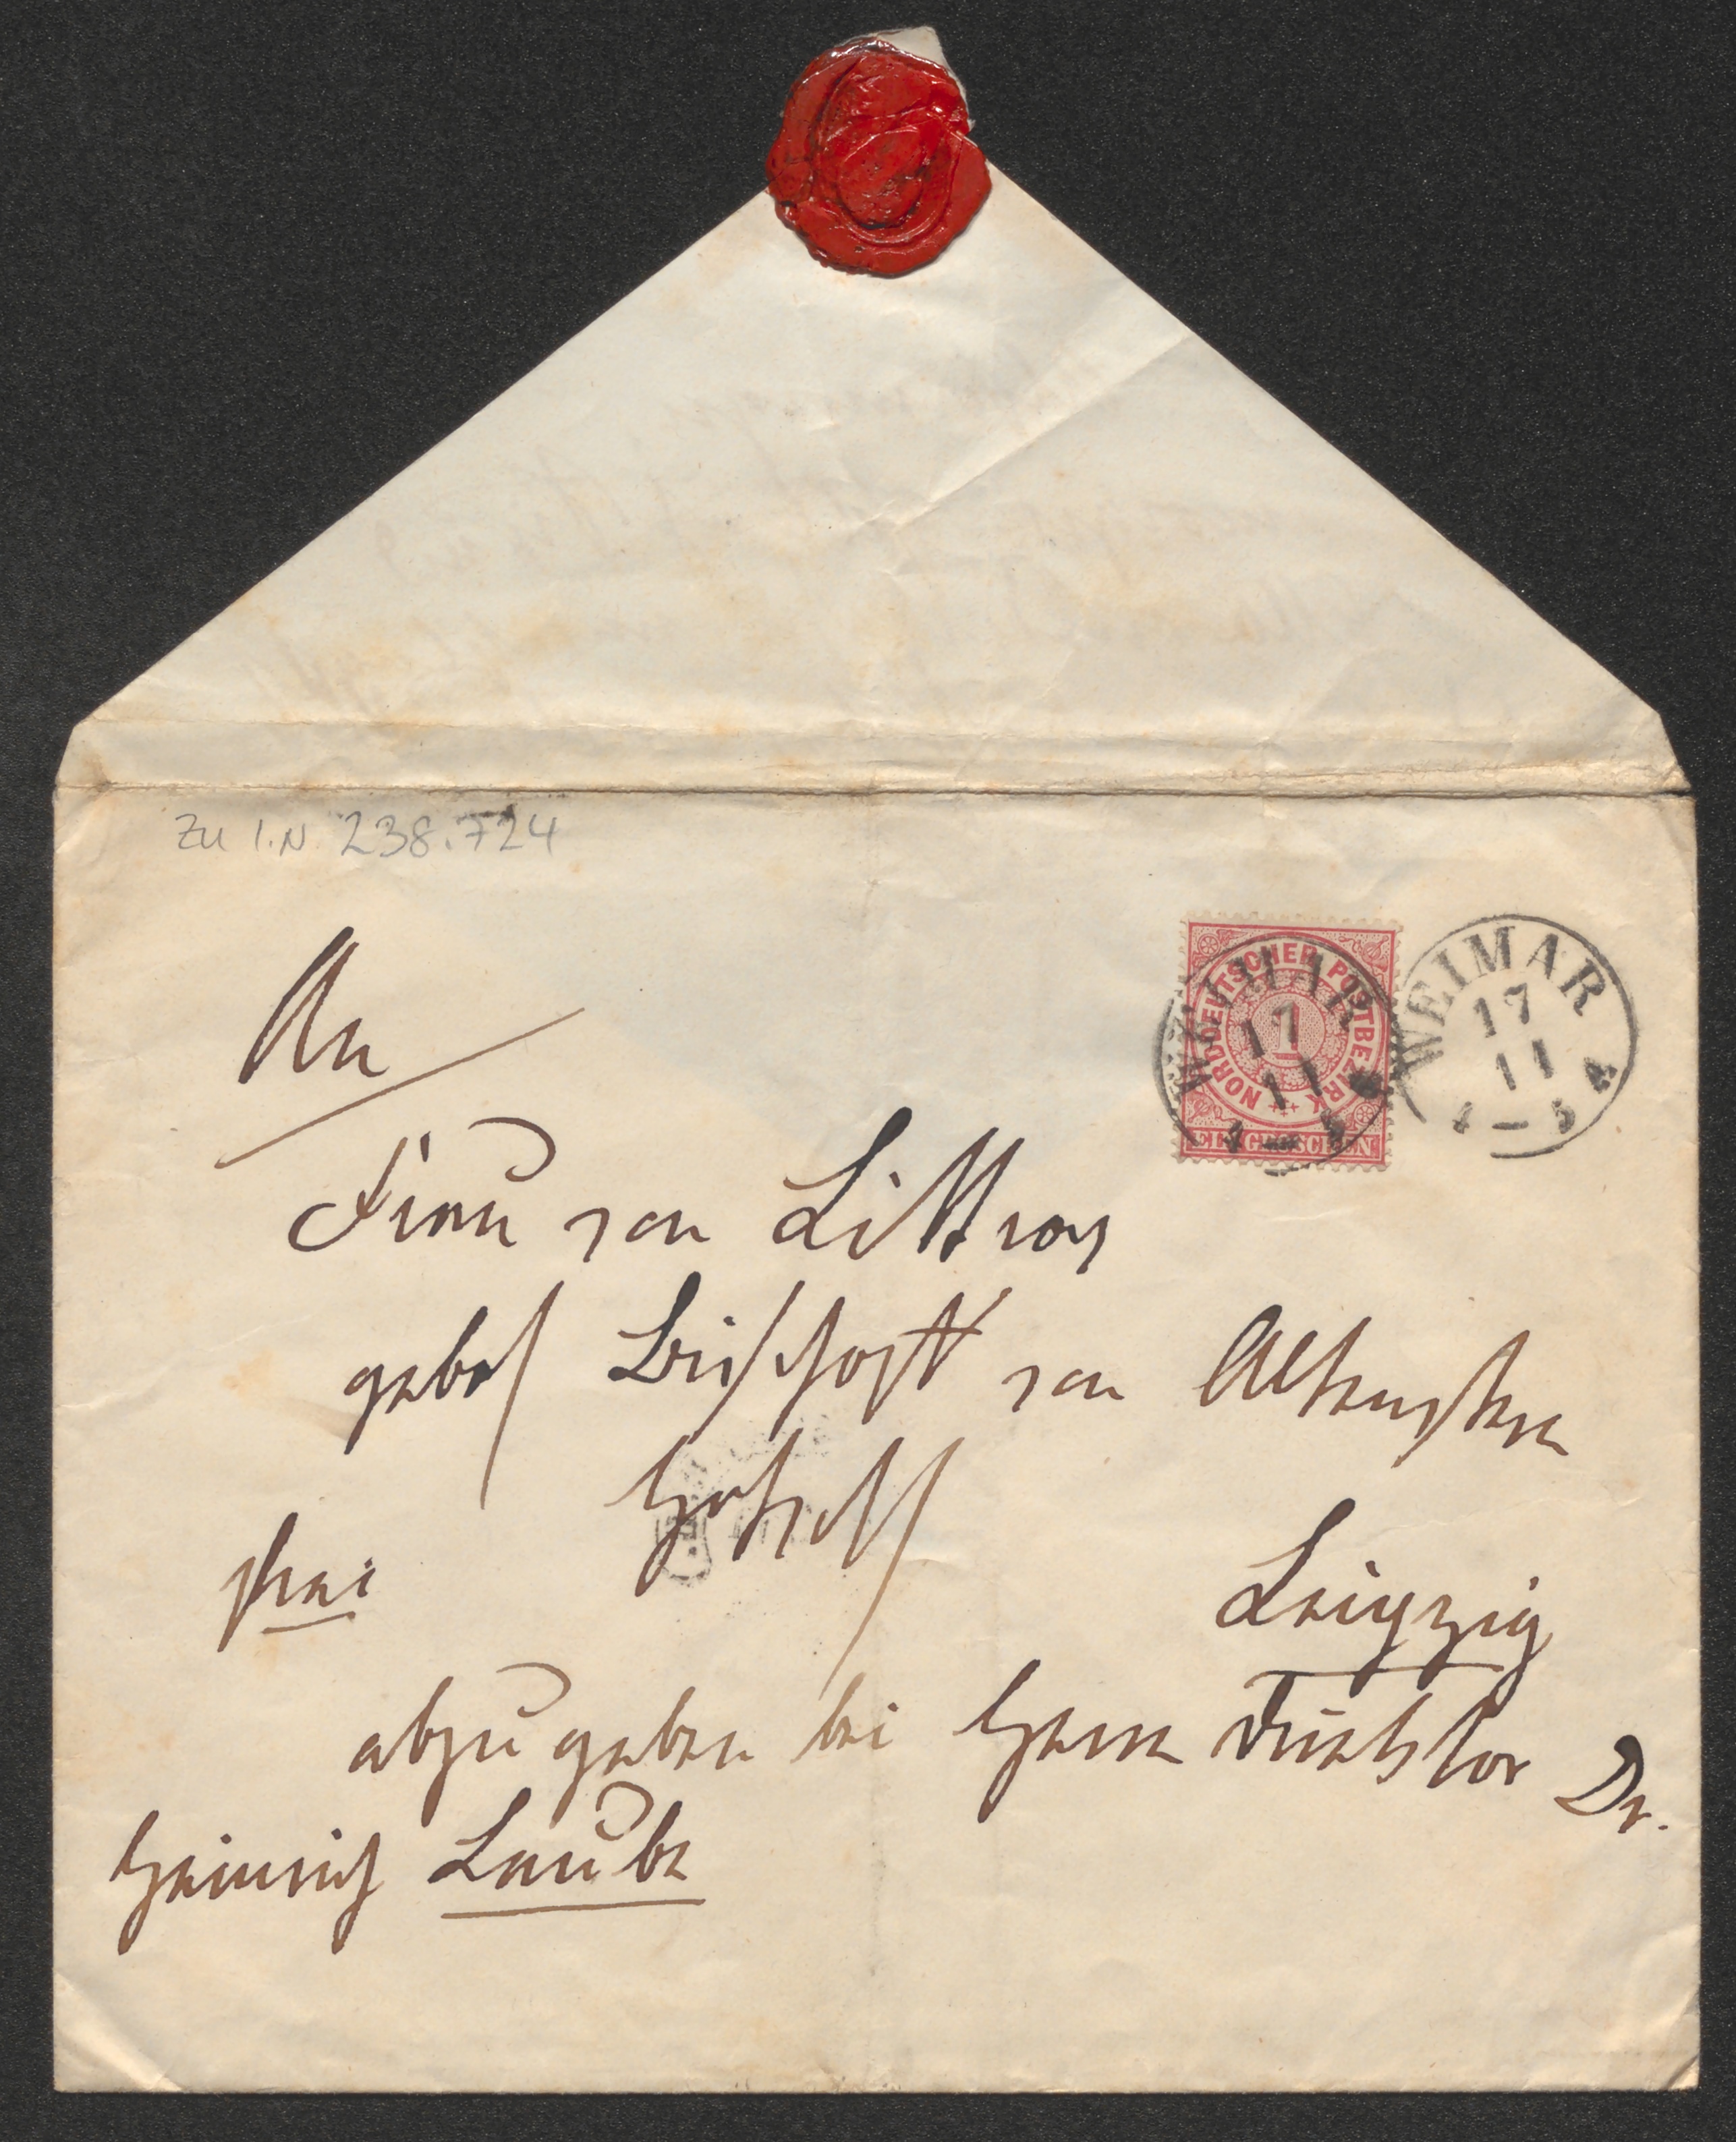 Zu I.N. 238.724
NORDDEUTSCHER POSTBEZIRK
1
EIN GROSCHEN
WEIMAR
17
11
4-5
WEIMAR
17
11
4-5
An
Frau von Littrow
gebor Bischoff von Altenstern
frei
Leipzig
abzugeben bei Herrn Direktor Dr.
Heinrich Laube